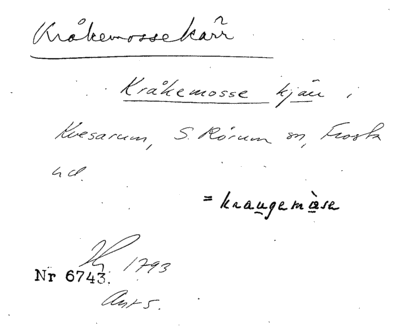 Kråkemossekärr
Kråkemosse kjärr i
Kvesarum, S. Rörum sn, Frosta
hd.
= kraugemåse
1793
Nr 6743.
Avt s.